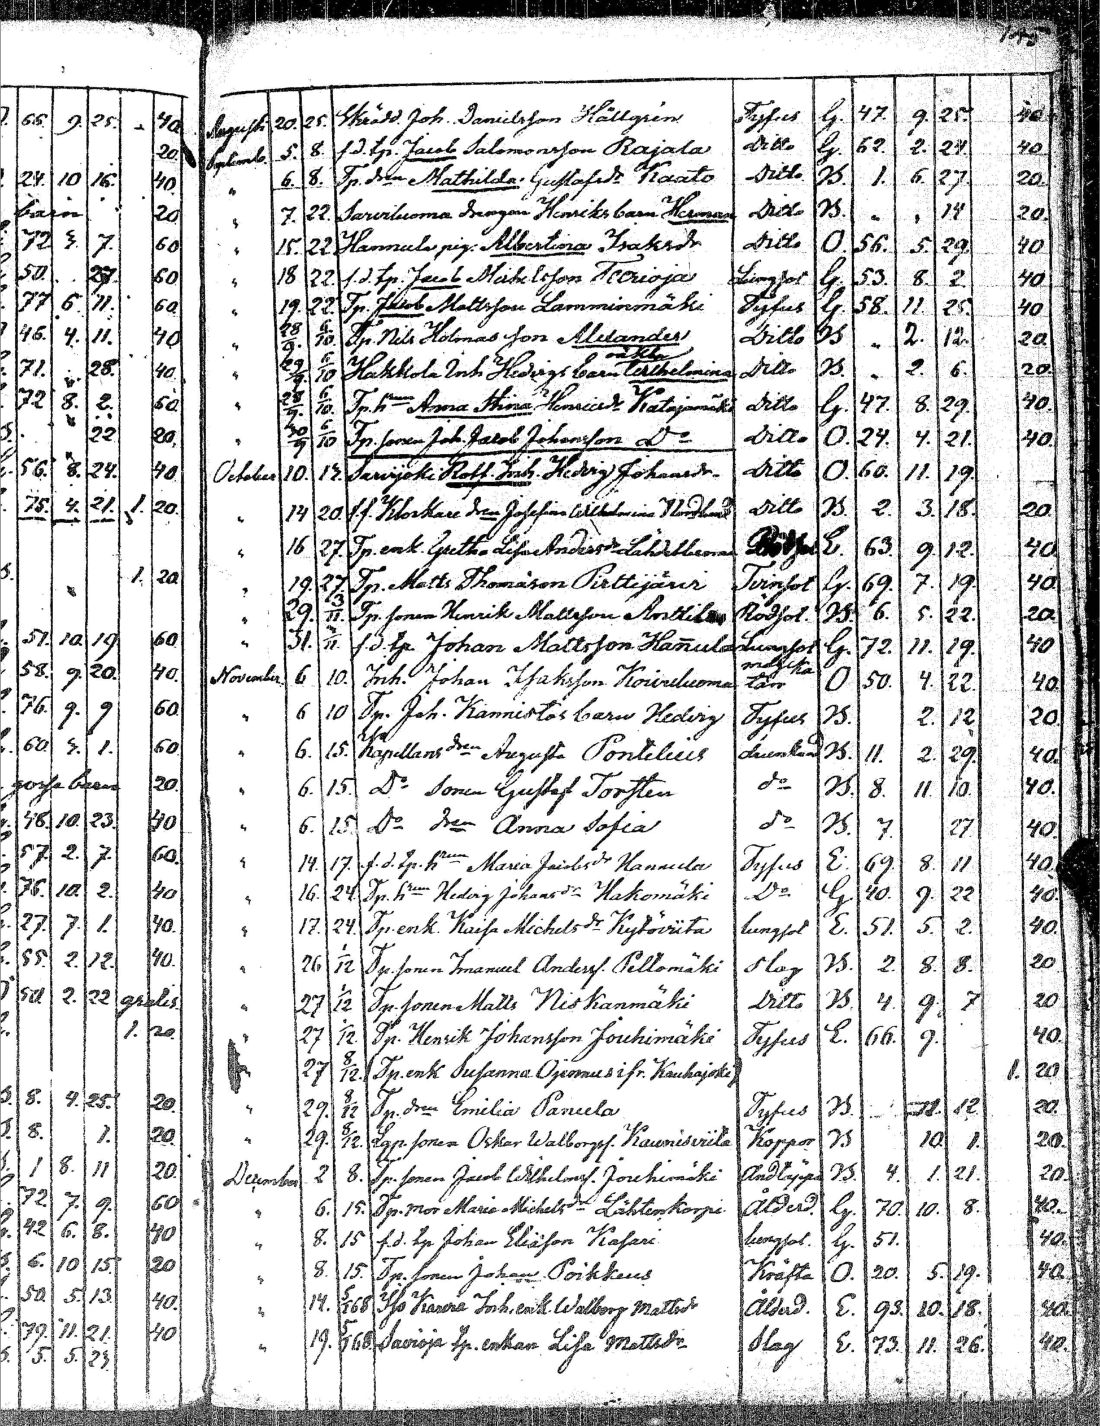 145
66. 9. 25. 40.
20.
24. 10 16. 40
barn 20
72 3. 7. 60
50. 27. 60
77 6 11. 60
46. 4. 11. 40
71. 28. 40.
72 8. 2. 60
22 20.
56. 8. 24. 40
75. 4. 21. 1. 20.
1. 20
51. 10. 19 60
58. 9. 20. 40.
76. 9. 9 60
60. 3. 1. 60
gosse barn 20.
48. 10. 23. 40
57. 2. 7. 60.
76. 10. 2. 40
27. 7. 1. 40.
55. 2. 12. 40.
50. 2. 22 gratis
1. 20.
8. 4. 25. 20.
8. 1. 20.
1 8. 11 20.
72. 7. 9. 60
42 6. 8. 40
6. 10 15 20
50. 5. 13. 40.
79. 11. 21. 40
5. 5. 23.
Augusti 20. 25. Skrädd. Joh. Danielsson Hällgrén Tyfus G. 47. 9. 25. 40.
Septemb. 5. 8. f.d. Lp. Jacob Salomonsson Rajala Ditto G. 62. 2. 24. 40
" 6. 8. Tp. dren Mathilda Gustafsdr Kaato Ditto B. 1. 6. 27 20.
" 7. 22. Sarviluoma drengen Henriks barn Herman Ditto B. " " 14 20.
" 15. 22 Hannula pig. Albertina Isaksdr Ditto O. 56. 5. 29. 40
" 18 22. f.d. Lp. Jacob Michelsson Teerioja Lungsot G. 53. 8. 2. 40.
" 19. 22. Tp. Jacob Mattsson Lamminmäki Tyfus G. 58. 11. 25. 40
" 28/9. 6/10. Tp. Nils Holmas son Alexander Ditto B " 2. 12. 20
" 29/9 6/10 Hakkola Inh. Hedvigs barn oäkta Wilhelmina Ditto B. " 2. 6. 20.
" 28/9. 6/10. Tp. hrun Anna Stina Henricsdr Katajamäki Ditto G. 47. 8. 29. 40.
" 30/9 6/10 Tp. sonen Joh. Jacob Johansson Do Ditto O. 24. 4. 21. 40.
October 10. 12. Sarvijoki Rolf. Inh. Hedvig Johansdr Ditto O. 60. 11. 19.
" 14 20. f.f. Klockare dren Josefina Wilhelmina Nordlund Ditto B. 2. 3. 18. 20.
" 16 27. Tp. enk. Gretha Lisa Andersdr Lähdeluoma Rödsot E. 63. 9. 12. 40.
" 19. 27. Tp. Matts Thomasson Pirttijärvi Tvinsot G. 69. 7. 19. 40.
" 29. 3/11. Tp. sonen Henrik Mattsson Anttila Rödsot. B. 6. 5. 22. 20.
" 31. 3/11. f.d. Lp. Johan Mattsson Hannula Lungsot G. 72. 11. 19. 40
November 6 10. Inh. Johan Isaksson Koivuluoma magkatarr O 50. 4. 22. 40.
" 6 10 Tp. Joh. Kannistos barn Hedvig Tyfus B. 2. 12 20.
" 6. 15. Kapellans dren Augusta Pontelius drunknad B. 11. 2. 29. 40.
" 6. 15. Do sonen Gustaf Torsten do B. 8. 11. 10. 40.
" 6. 15. Do dren Anna Sofia do B. 7. 27. 40.
" 14. 17. f.d. Lp. hrun Maria Jacobsdr Hannula Tyfus E. 69. 8. 11 40.
" 16. 24. Tp. hrun Hedvig Johansdr Hakomäki Do G. 40. 9. 22 40.
" 17. 24. Tp. enk. Kaisa Michelsdr Kytöviita lungsot E. 51. 5. 2. 40.
" 26 1/12 Tp. sonen Imanuel Anderss. Peltomäki Slag B. 2. 8. 8. 20
" 27 1/12 Tp. sonen Matts Niskanmäki Ditto B. 4. 9. 7 20
" 27 1/12. Tp. Henrik Johansson Jouhimäki Tyfus E. 66. 9. 40.
27 8/12. Tp. enk Susanna Ojennus ifr. Kauhajoki 1. 20
" 29. 8/12 Tp. dren Emilia Panula Tyfus B. 11. 12. 20.
" 29. 8/12. Lgp. sonen Oskar Walborgs. Kaunisviita Koppor B 10. 1. 20.
December 2 8. Tp. sonen Jacob Wilhelms. Jouhimäki Andtäppa B. 4. 1. 21. 20.
" 6. 15. Tp. mor Maria Michelsdr Lähtenkorpi Ålderd. G. 70. 10. 8. 40.
" 8. 15 f.d. Lp Johan Eliasson Kasari lungsot. G. 51. 40.
" 8. 15. Tp. sonen Johan Poikkeus Kräfta O. 20. 5. 19. 40.
" 14. 5/1 68 Iso Kaura Inh. enk. Walborg Mattsdr Ålderd. E. 93. 10. 18. 40.
" 19. 5/1 68. Savioja Lp. enkan Lisa Mattsdr Slag E. 73. 11. 26. 40.